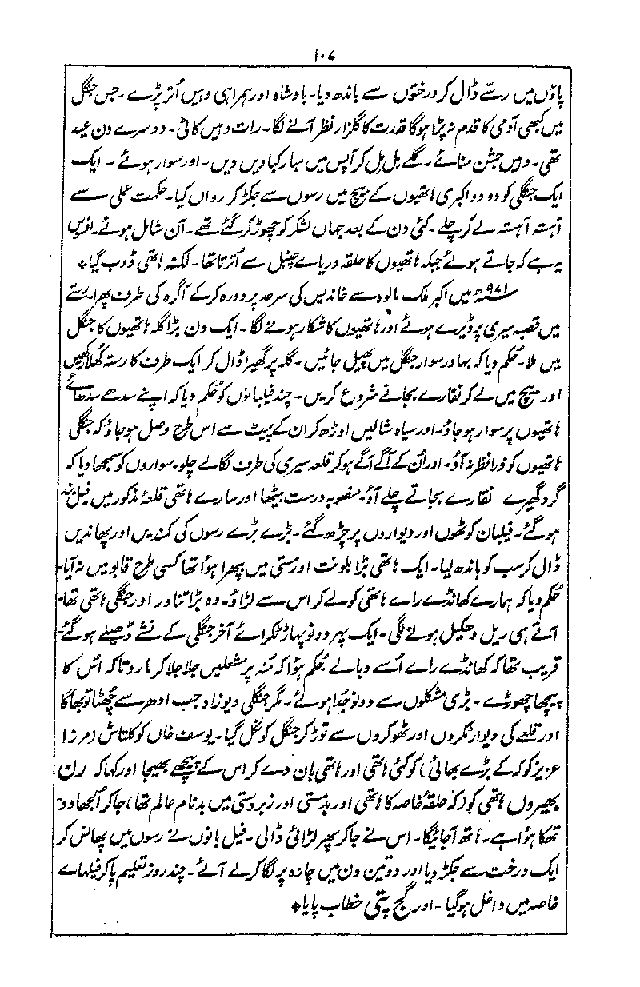 ۱۰۷
پاؤں میں رسّے ڈال کر درختوں سے باندھ دیا۔ بادشاہ اور ہمراہی وہیں اُتر پڑے۔ جس جنگل
میں کبھی آدمی کا قدم نہ پڑا ہوگا قدرت کا گلزار نظر آنے لگا۔ رات وہیں کاٹی۔ دوسرے دن عید
تھی۔ وہیں جشن منائے۔ گلے مل مل کر آپس میں مبارکبادیں دیں۔ اور سوار ہوئے۔ ایک
ایک جنگلی کو دو دو اکبری ہاتھیوں کے بیچ میں رسوں سے جکڑ کر رواں کیا۔ حکمت عملی سے
آہستہ آہستہ لے کر چلے۔ کئی دن کے بعد جہاں لشکر کو چھوڑ کر گئے تھے۔ آن شامل ہوئے۔ افسوس
یہ ہے کہ جاتے ہوئے جبکہ ہاتھیوں کا حلقہ دریاے چنبل سے اُترتا تھا۔ لکنہ ہاتھی ڈوب گیا۔
۹۷۱ھ میں اکبر ملک مالوہ سے خاندیس کی سرحد پر دورہ کرکے آگرہ کی طرف پھرا رستے
میں قصبہ سیری پر ڈیرے ہوئے اور ہاتھیوں کا شکار ہونے لگا۔ ایک دن بڑا گلہ ہاتھیوں کا جنگل
میں ملا۔ حکم دیا کہ بہادر سوار جنگل میں پھیل جائیں۔ گلہ پر گھیرا ڈال کر ایک طرف کا رستہ کُھلا رکھیں
اور بیچ میں لے کر نقارے بجانے شروع کریں۔ چند فیلبانوں کو حکم دیا کہ اپنے سدھے سدھائے
ہاتھیوں پر سوار ہو جاؤ۔ اور سیاہ شالیں اوڑھ کر ان کے پیٹ سے اس طرح وصل ہو جاؤ کہ جنگلی
ہاتھیوں کو ذرا نظر نہ آؤ۔ اور اُن کے آگے آگے ہو کر قلعہ سیری کی طرف لگائے چلو۔ سواروں کو سمجھا دیا کہ
گرد گھیرے نقارے بجاتے چلے آؤ۔ منصوبہ درست بیٹھا اور سارے ہاتھی قلعۂ مذکور میں فیل بند
ہو گئے۔ فیلبان کوٹھوں اور دیواروں پر چڑھ گئے۔ بڑے بڑے رسوں کی کمندیں اور پھاندیں
ڈال کر سب کو باندھ لیا۔ ایک ہاتھی بڑا بلونت اور مستی میں بپھرا ہؤا تھا کسی طرح قابو میں نہ آیا۔
حکم دیا کہ ہمارے کھانڈے راے ہاتھی کو لے کر اس سے لڑاؤ۔ وہ بڑا تناور اور جنگی ہاتھی تھا۔
آتے ہی ریل دھکیل ہونے لگی۔ ایک پہر دونو پہاڑ ٹکرائے آخر جنگلی کے نشے ڈھیلے ہو گئے۔
قریب تھا کہ کھانڈے راے اُسے دبا لے حکم ہؤا کہ مُنہ پر مشعلیں جلا جلا کر مارو تاکہ اُس کا
پیچھا چھوڑے۔ بڑی مشکلوں سے دونو جُدا ہوئے۔ مگر جنگلی دیوزاد جب ادھر سے چُھٹا تو بھاگا
اور قلعے کی دیوار ٹکروں اور ٹھوکروں سے توڑ کر جنگل کو نکل گیا۔ یوسف خاں کوکلتاش (مرزا
عزیز کوکہ کے بڑے بھائی) کو کئی ہاتھی اور ہاتھی بان دے کر اس کے پیچھے بھیجا اور کہا کہ رن
بھیروں ہاتھی کو (کہ حلقۂ خاصہ کا ہاتھی اور بدمستی اور زبردستی میں بدنام عالم تھا) جا کر اُلجھا دو۔
تھکا ہؤا ہے۔ ہاتھ آ جائیگا۔ اس نے جا کر پھر لڑائی ڈالی۔ فیل بانوں نے رسوں میں پھانس کر
ایک درخت سے جکڑ دیا اور دو تین دن میں چارہ پر لگا کر لے آئے۔ چند روز تعلیم پا کر فیلہاے
خاصہ میں داخل ہو گیا۔ اور گج پتی خطاب پایا۔